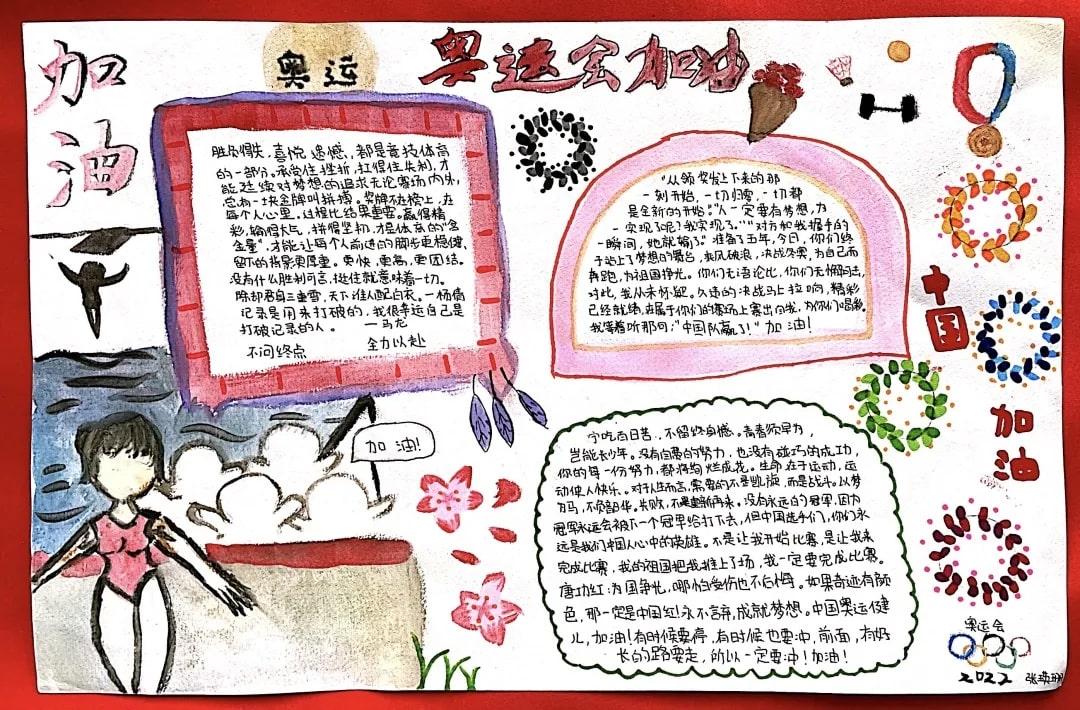 加油
奥运
奥运会加油
胜负得失,喜悦遗憾,都是竞技体育
的一部分。承受住挫折,扛得住失利,才
能延续对梦想的追求无论赛场内外,
总有一块金牌叫拼搏。奖牌不在榜上,在
每个人心里。过程比结果重要。赢得精
彩,输得大气,拼得坚韧,才是体育的“含
金量”,才能让每个人前进的脚步更稳健、
留下的背影更厚重。更快,更高,更团结。
没有什么胜利可言,挺住就意味着一切。
除却君身三重雪,天下谁人配白衣。一杨倩
记录是用来打破的,我很幸运自己是
打破记录的人。 一马龙
不问终点 全力以赴
“从领奖台上下来的那
一刻开始,一切归零,一切都
是全新的开始。”“人一定要有梦想,万
一实现了呢?我实现了。”“对方和我握手的
一瞬间,她就输了。”准备了五年,今日,你们终
于站上了梦想的舞台,乘风破浪,决战冬赛,为自己而
奔跑,为祖国争光。你们无语论比,你们无惧回击,
对此,我从未怀疑。久违的决战马上拉响,精彩
已经就绪,在属于你们的赛场上赛出自我,为你们喝彩。
我等着听那句:“中国队赢了!”加油!
中国
加油
加油!
宁吃百日苦,不留终身憾。青春须早为,
岂能长少年。没有白费的努力,也没有碰巧的成功,
你的每一份努力,都将绚烂成花。生命在于运动,运
动使人快乐。对于人生而言,需要的不是凯旋,而是战斗。以梦
为马,不负韶华。失败,不过是重新再来。没有永远的冠军,因为
冠军永远会被下一个冠军给打下去,但中国选手们,你们永
远是我们中国人心中的英雄。不是让我开始比赛,是让我来
完成比赛,我的祖国把我推上了场,我一定要完成比赛。
唐功红:为国争光,哪怕受伤也不后悔。如果奇迹有颜
色,那一定是中国红!永不言弃,成就梦想。中国奥运健
儿,加油!有时候要停,有时候也要冲,前面,有好
长的路要走,所以一定要冲!加油!
奥运会
2022 张瑛珊